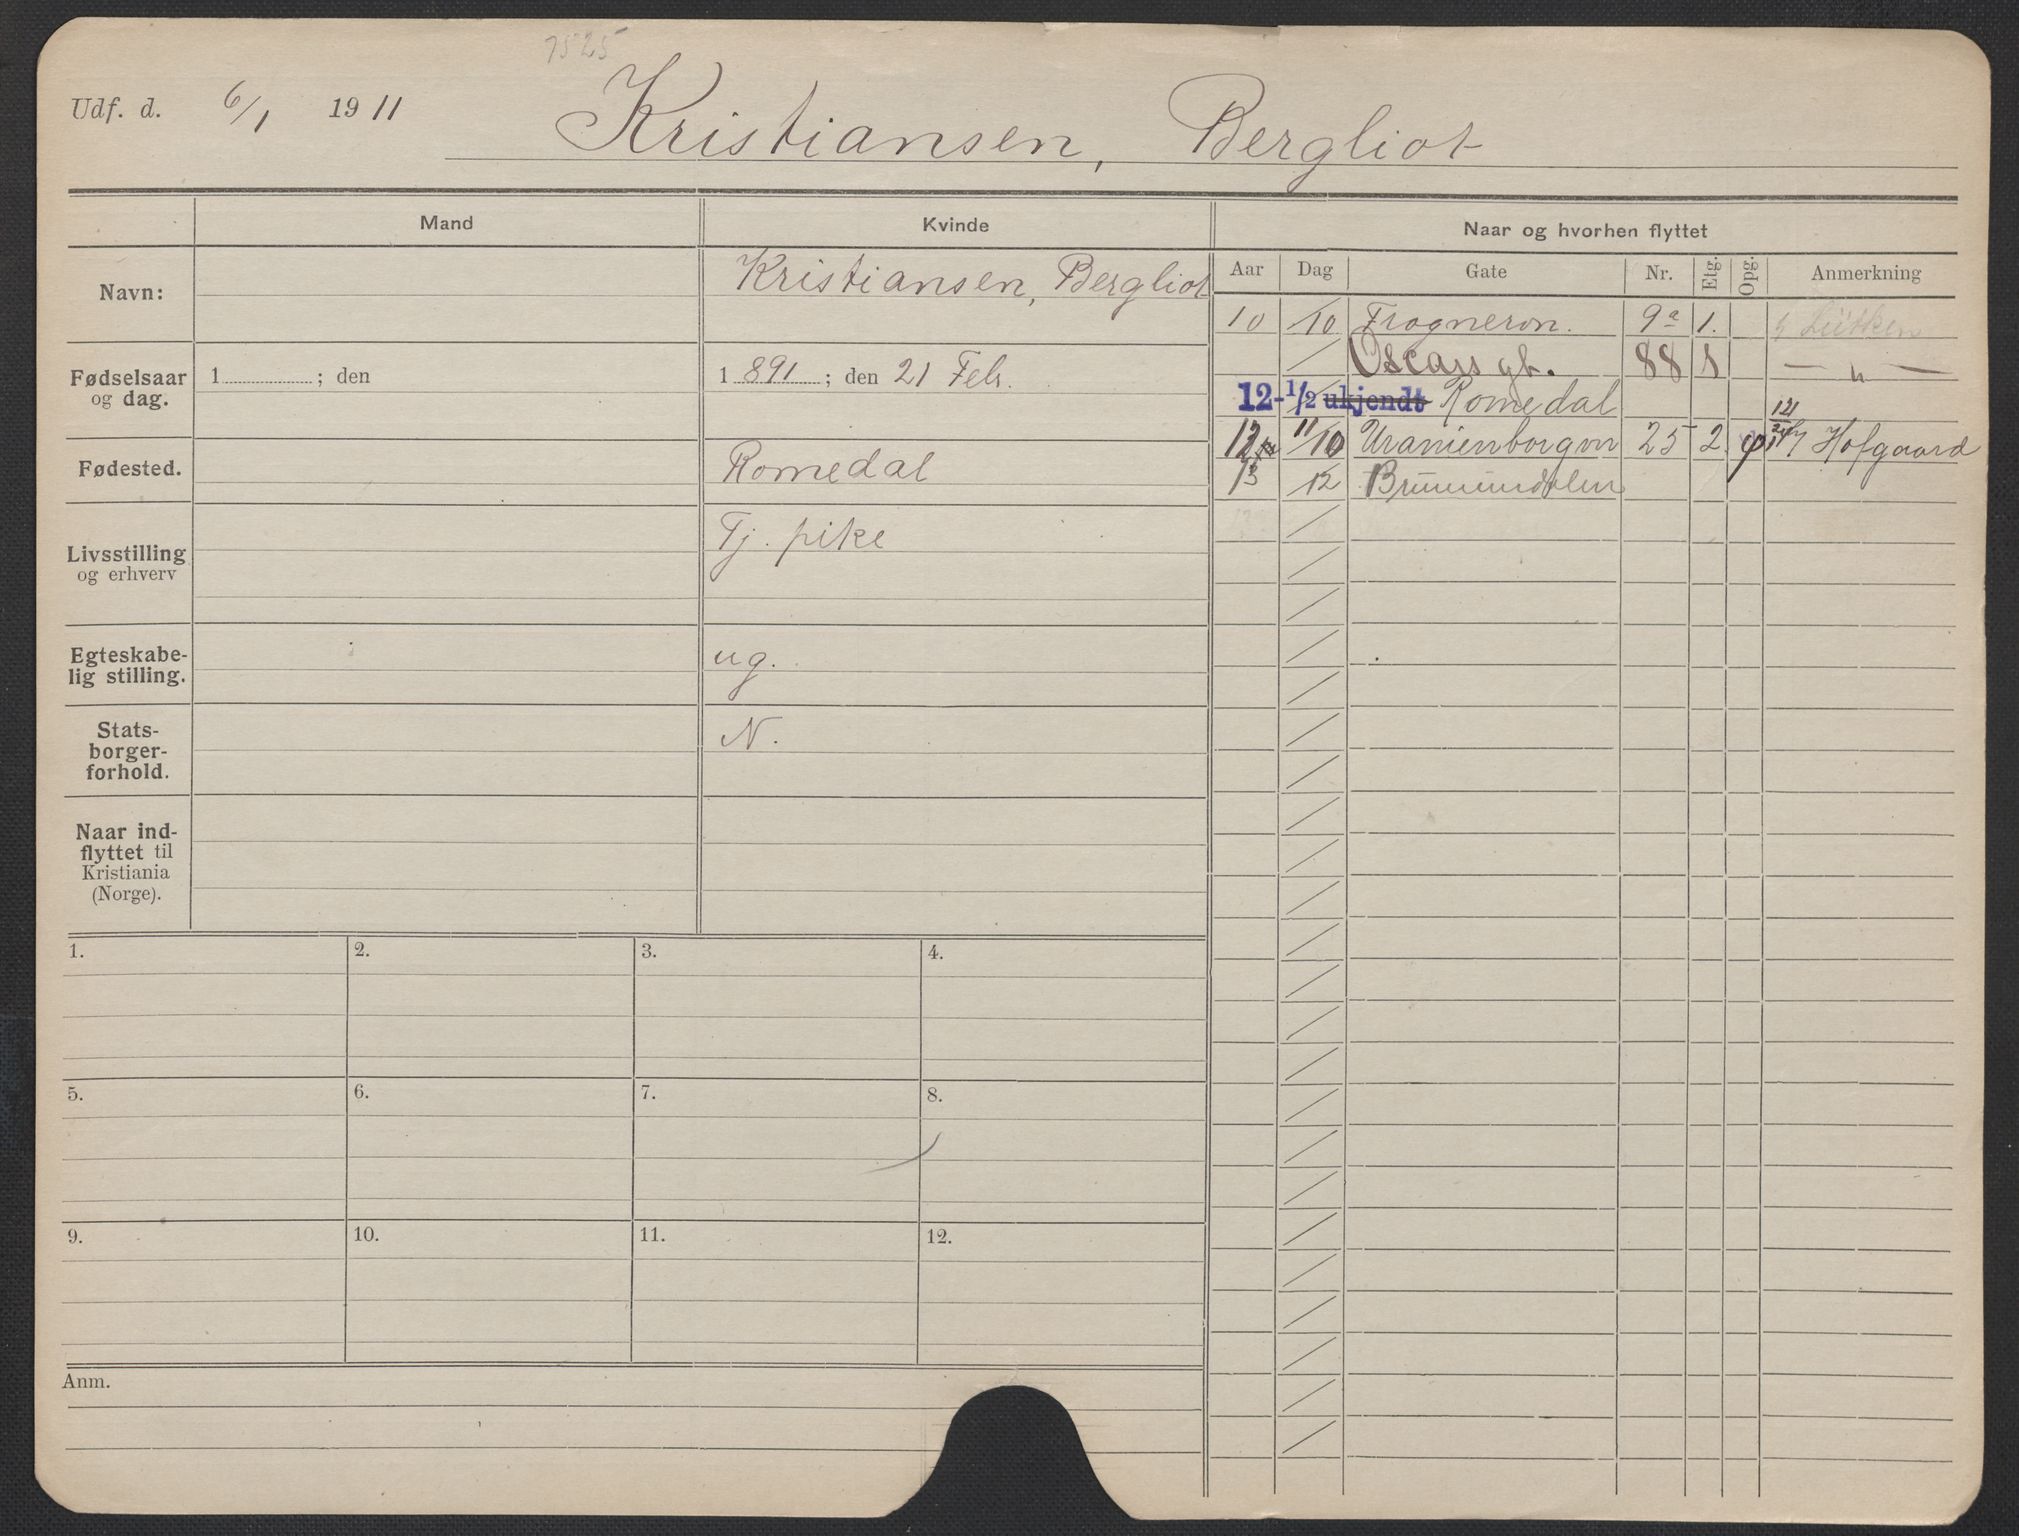 7525
Udf. d. 6/1 1911 Kristiansen, Bergliot
Mand Kvinde Naar og hvorhen flyttet
Aar Dag Gate Nr. Etg. Opg. Anmerkning
Navn: Kristiansen, Bergliot
10 /10 Frognervn. 9a 1. Lütken
Oscars gt. 88 — " —
Fødselsaar og dag. 1 ; den 1 891 ; den 21 Febr.
12- 1/2 ukjendt Romedal
12 11/10 Uranienborgvn 25 2 Hofgaard
Fødested. Romedal
13 /12 Brummundalen
Livsstilling Tj. pike
og erhverv
Egteskabe-
lig stilling. ug.
Stats-
borger-
forhold. N.
Naar ind-
flyttet til
Kristiania
(Norge).
1. 2. 3. 4.
5. 6. 7. 8.
9. 10. 11. 12.
Anm.